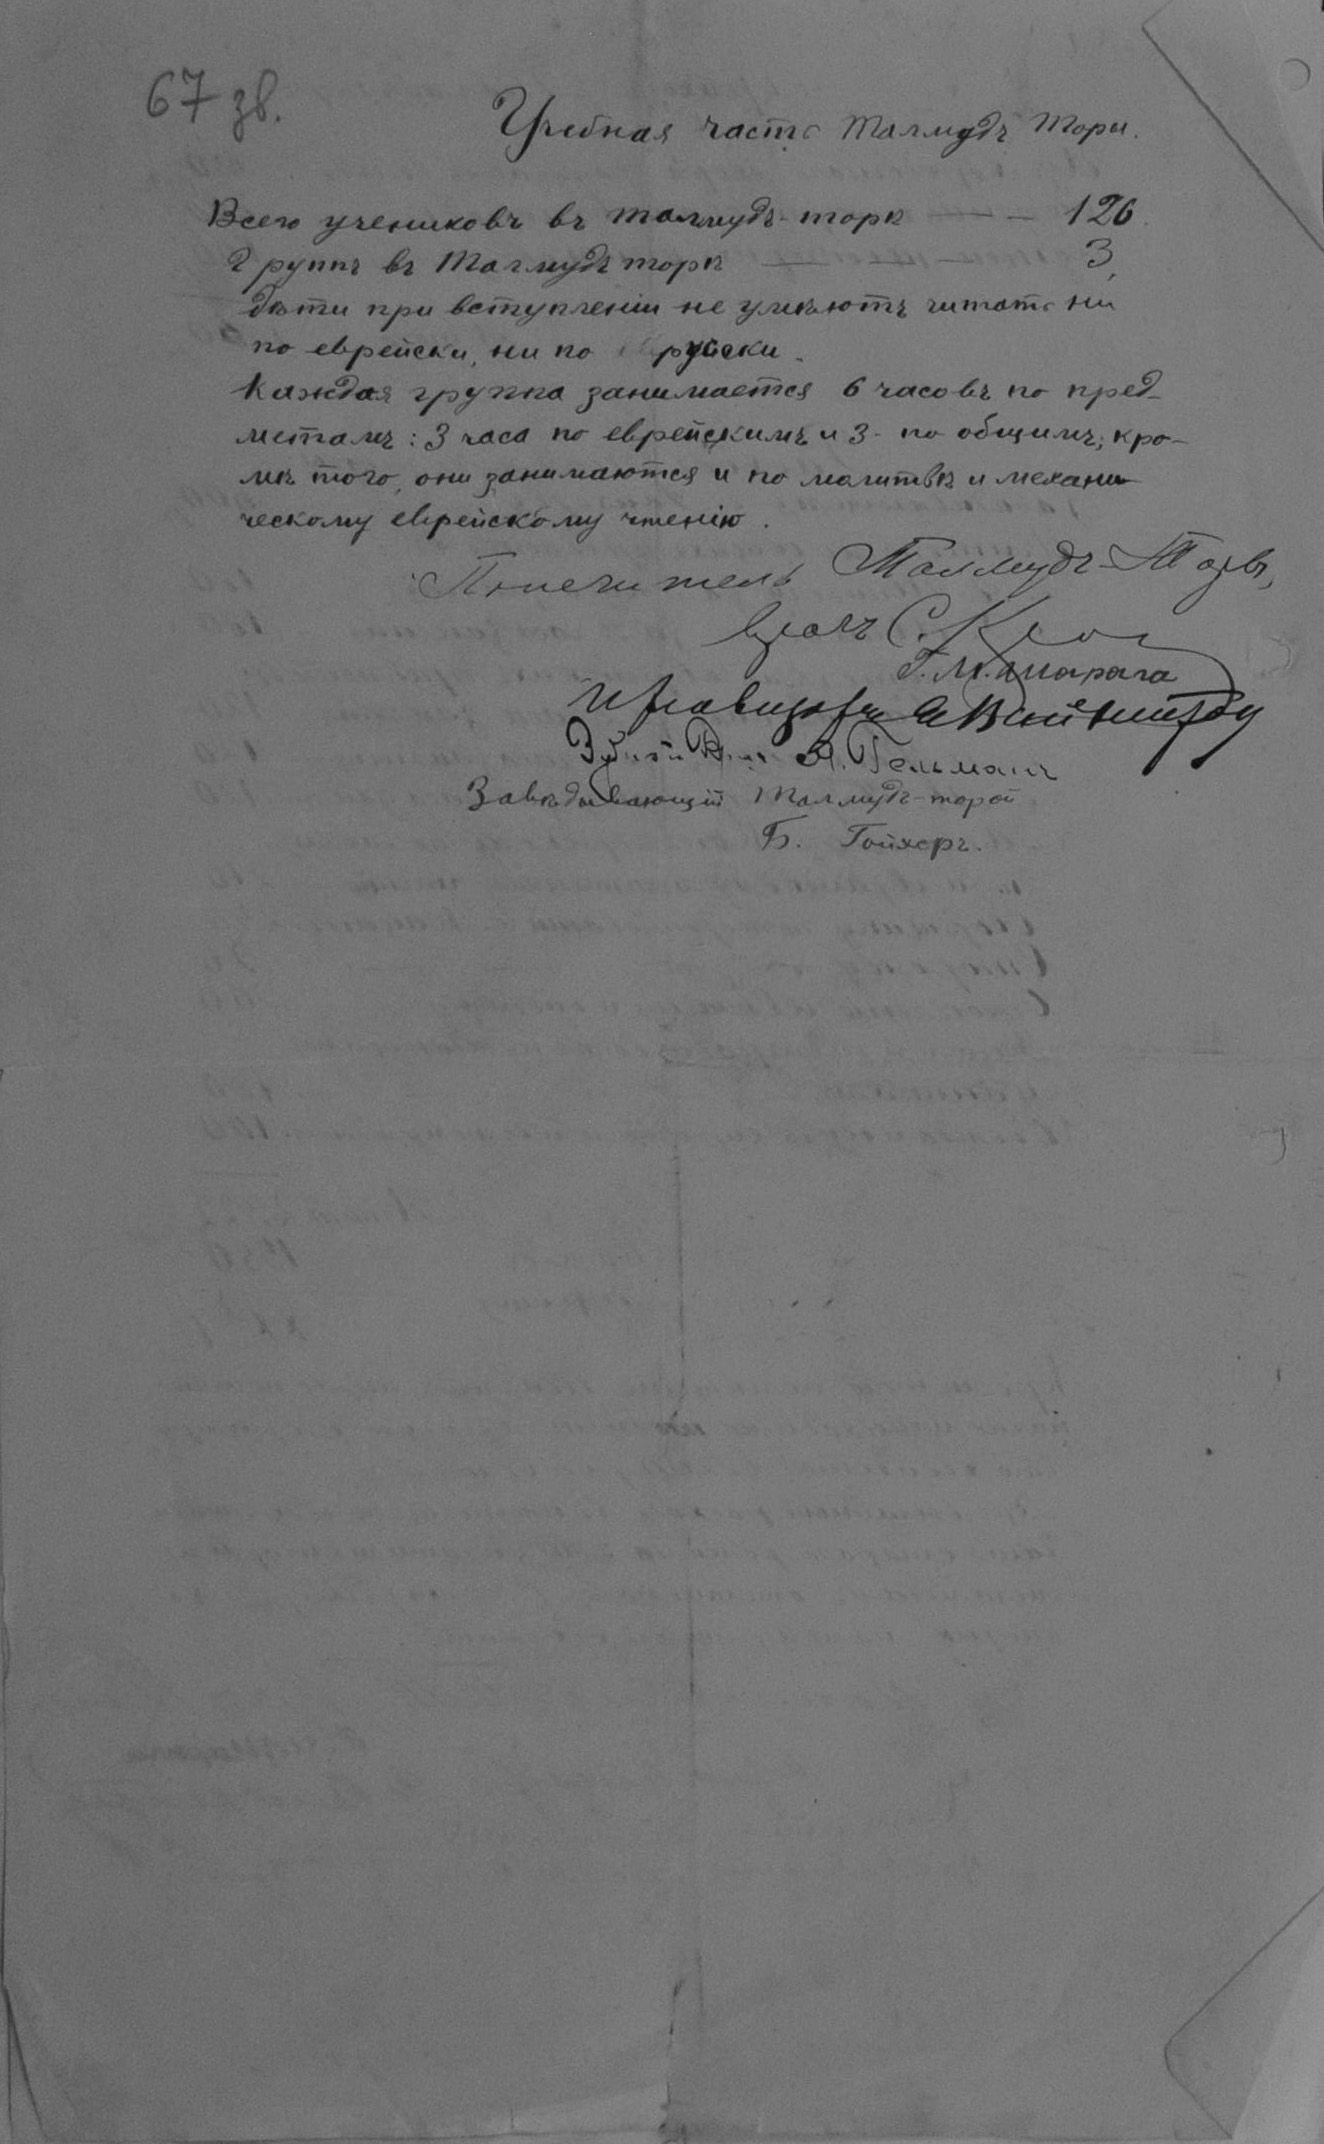 67 зв.
Учебная часть Талмудъ Торы.
Всего учениковъ въ талмудъ-торѣ — — 126.
Группъ въ Талмудъ торѣ — — 3,
дѣти при вступленіи не умѣютъ читать ни
по еврейски, ни по русски.
Каждая группа занимается 6 часовъ по пред-
метамъ: 3 часа по еврейскимъ и 3 - по общимъ; кро-
мѣ того, они занимаются и по молитвѣ и механи-
ческому еврейскому чтенію.
Попечитель Талмудъ-Торы,
врачъ С.
Г. М. Шарага
Провизоръ
Зубной Врачъ А. Гельманъ
Завѣдывающій Талмудъ-торой
Б. Гойхеръ.